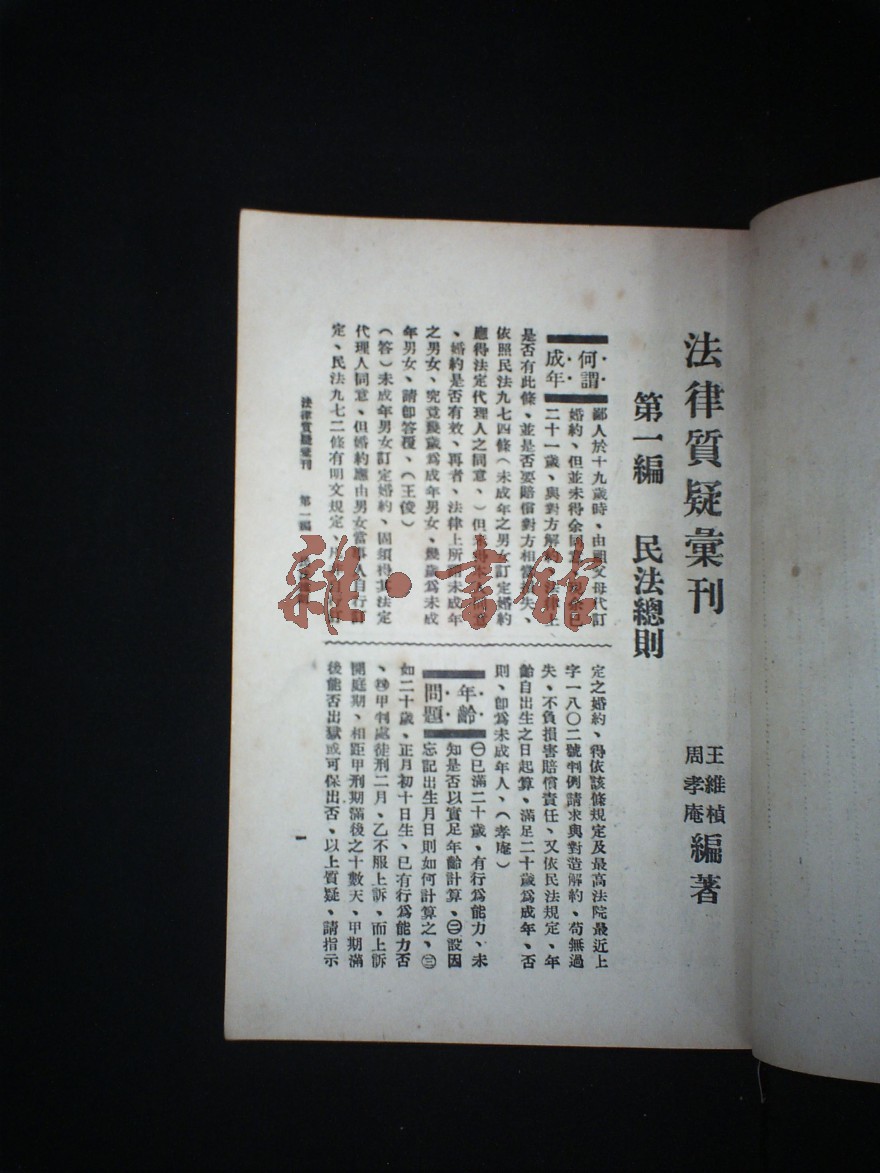 法律質疑彙刊
王維楨
周孝庵
編著
第一編 民法總則
何謂
成年
鄙人於十九歲時、由祖父母代訂
婚約、但並未得余同意、現余已
二十一歲、與對方解約、法律上
是否有此條、並是否要賠償對方相當損失、
依照民法九七四條(未成年之男女訂定婚約
應得法定代理人之同意、)但
、婚約是否有效、再者、法律上所謂未成年
之男女、究竟幾歲爲成年男女、幾歲爲未成
年男女、請卽答覆、(王俊)
(答)未成年男女訂定婚約、固須得其法定
代理人同意、但婚約應由男女當事人自行訂
定、民法九七二條有明文規定、
定之婚約、得依該條規定及最高法院最近上
字一八〇二號判例請求與對造解約、苟無過
失、不負損害賠償責任、又依民法規定、年
齡自出生之日起算、滿足二十歲爲成年、否
則、卽爲未成年人、(孝庵)
年齡
問題
㊀已滿二十歲、有行爲能力、未
知是否以實足年齡計算、㊁設因
忘記出生月日則如何計算之、㊂
如二十歲、正月初十日生、已有行爲能力否
、㊃甲判處徒刑二月、乙不服上訴、而上訴
開庭期、相距甲刑期滿後之十數天、甲期滿
後能否出獄或可保出否、以上質疑、請指示
法律質疑彙刊 第一編
一
雜·書館